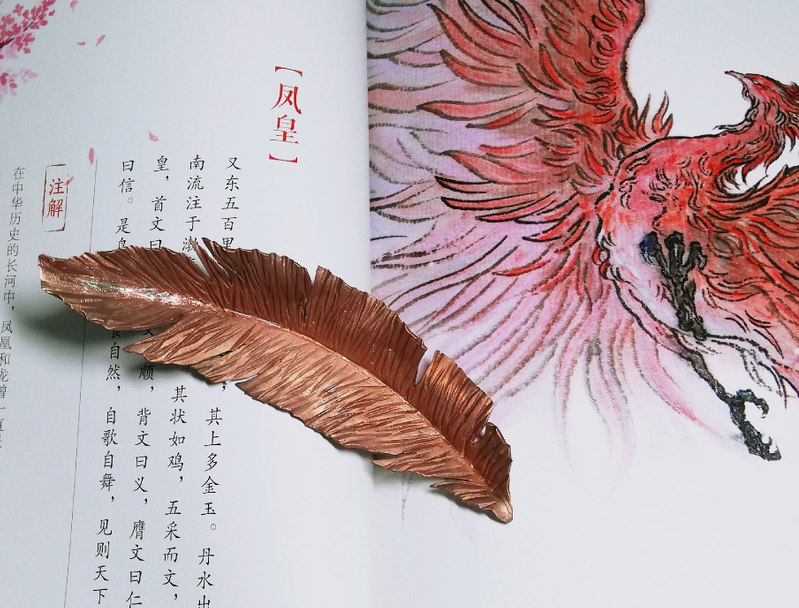 【凤皇】
又东五百里 ，其上多金玉。丹水出
南流注于 其状如鸡，五采而文，
皇，首文曰 顺，背文曰义，膺文曰仁
曰信。是 自然，自歌自舞，见则天下
注解
在中华历史的长河中，凤凰和龙曾一直